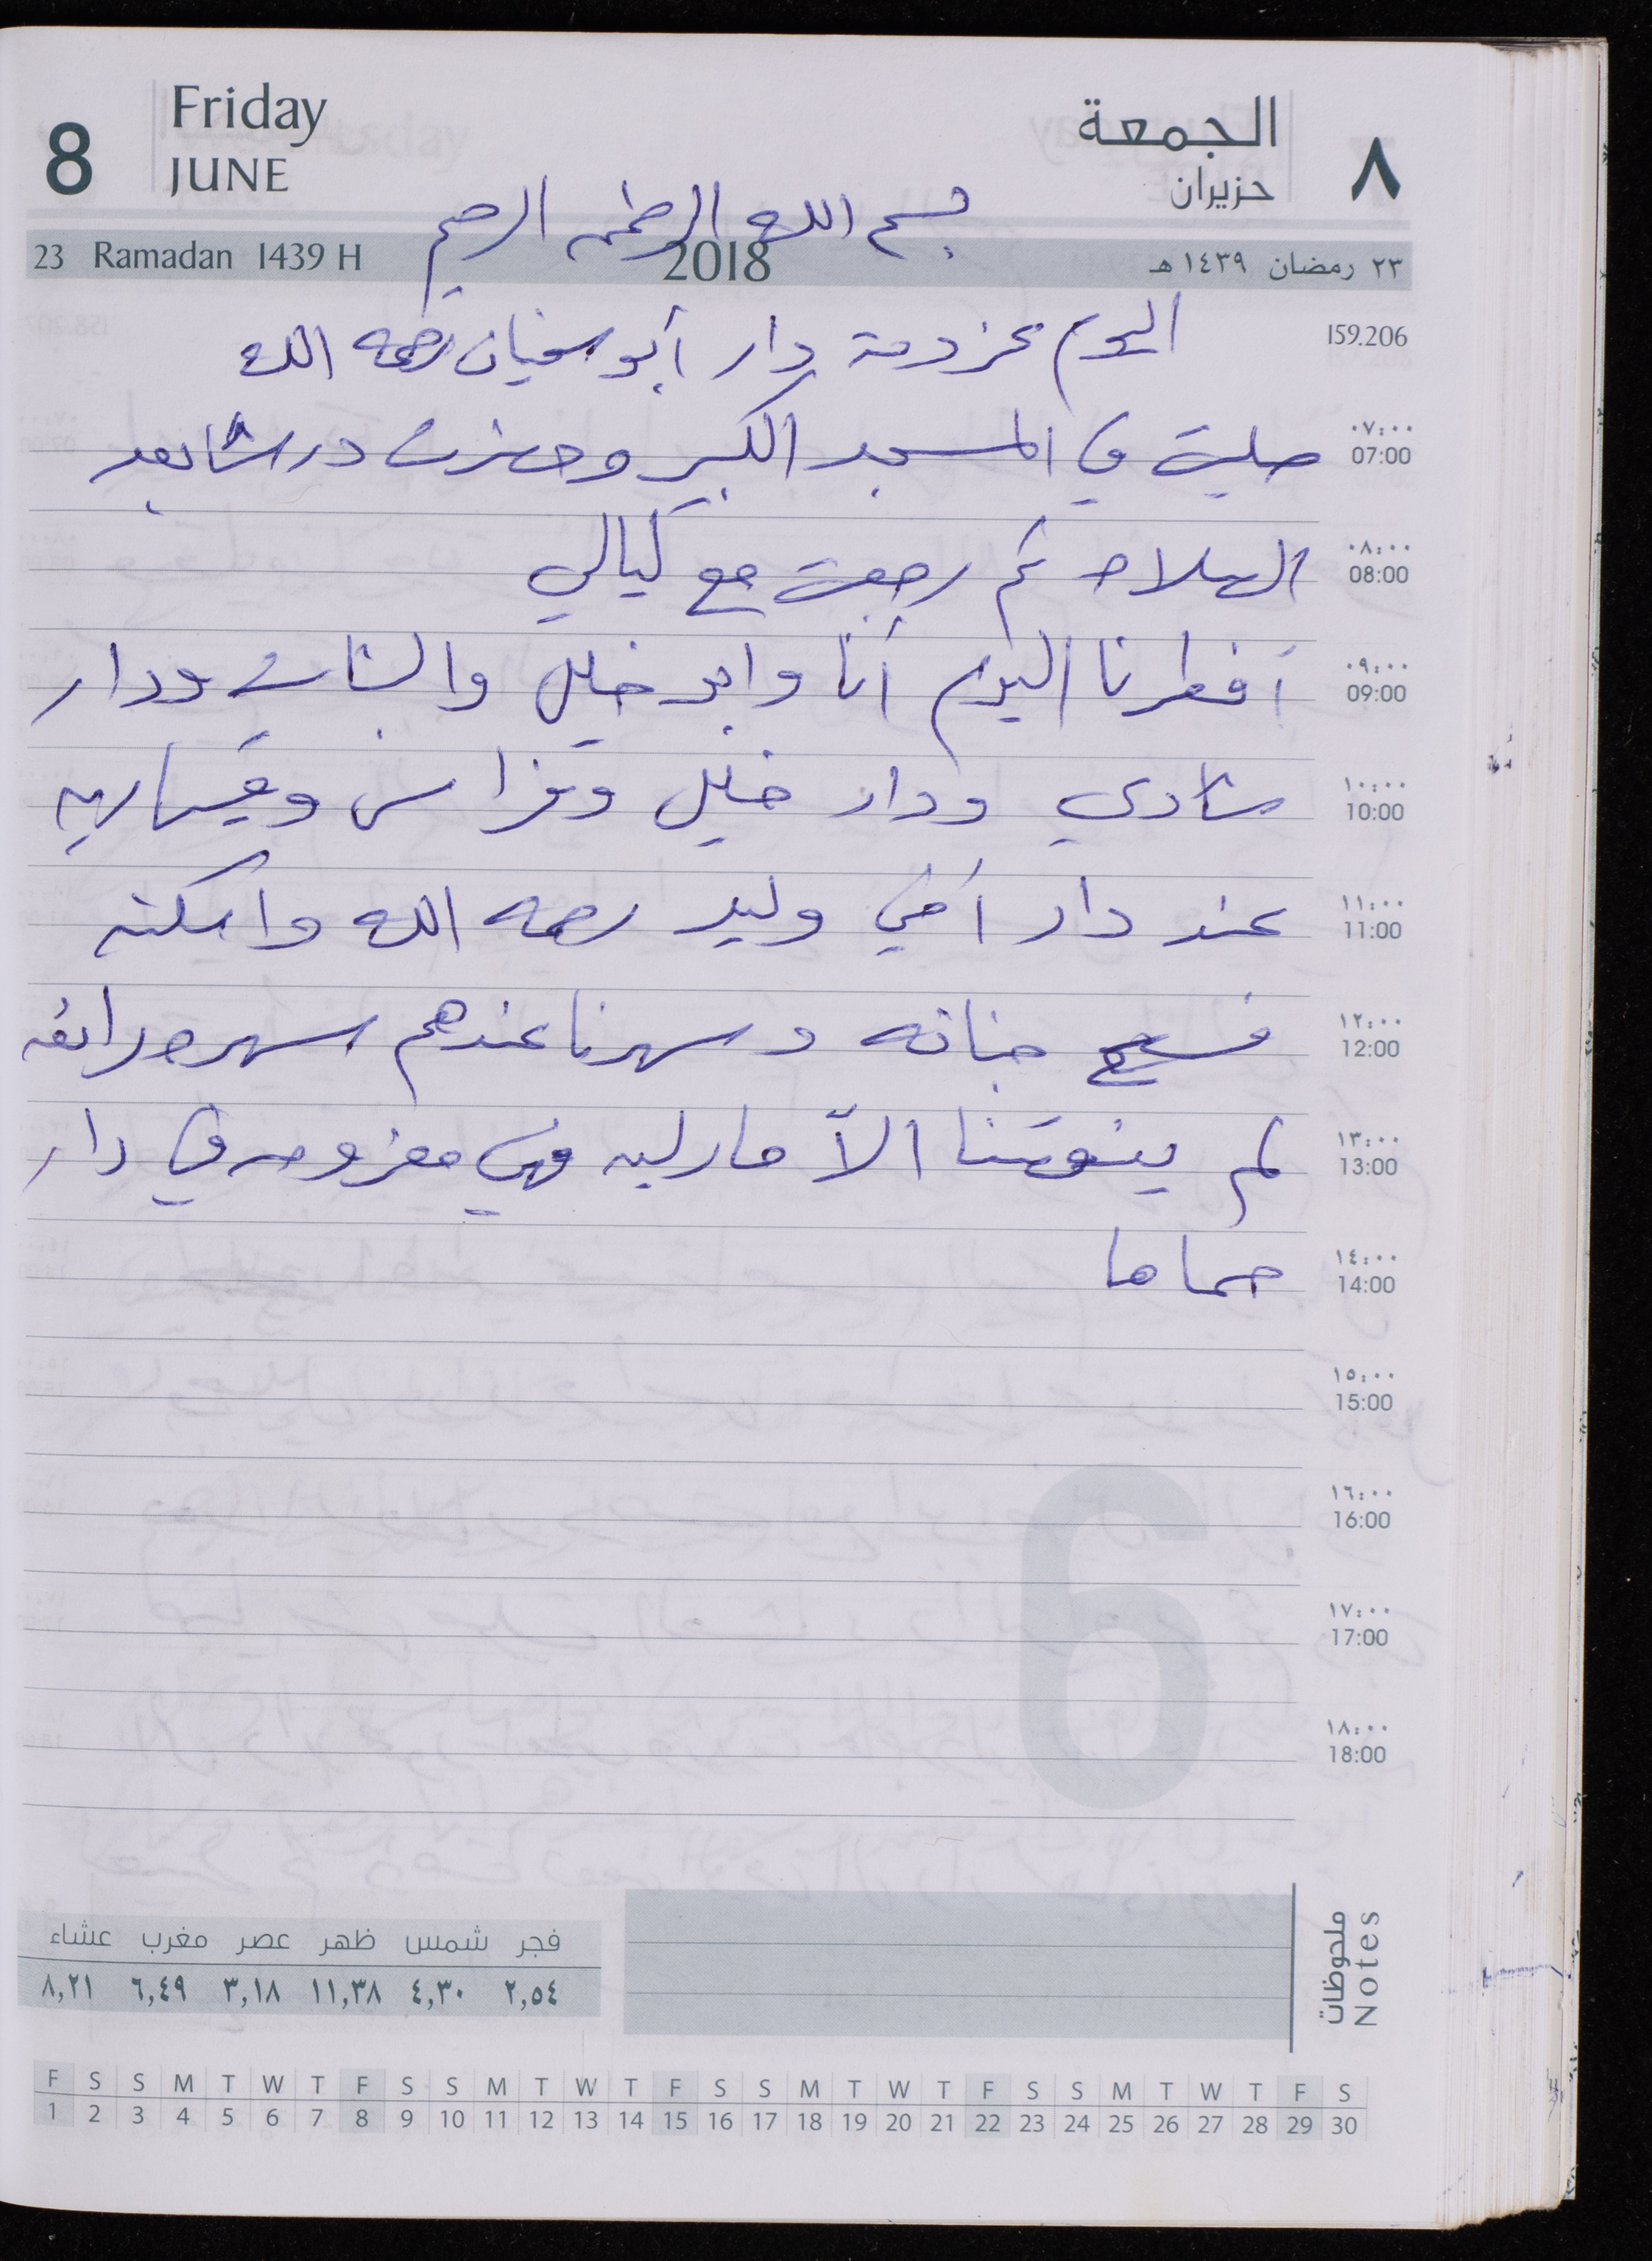 8 Friday JUNE الجمعة حزيران ٨
بسم الله الرحمن الرحيم
23 Ramadan 1439 H 2018 ٢٣ رمضان ١٤٣٩ هـ
159.206
اليوم عزومة دار أبو سفيان رحمه الله
٠٧:٠٠ 07:00
صليت في المسجد الكبير وحضرت درسا بعد
٠٨:٠٠ 08:00
الصلاه ثم رجعت مع ليالي
٠٩:٠٠ 09:00
أفطرنا اليوم أنا وابو خليل والبنات ودار
١٠:٠٠ 10:00
شادي ودار خليل وفراس وقيساريه
١١:٠٠ 11:00
عند دار أخي وليد رحمه الله واسكنه
١٢:٠٠ 12:00
فسيح جناته وسهرنا عندهم سهره رائعه
١٣:٠٠ 13:00
لم ينقصنا الاّ مارليه فهي معزومه في دار
١٤:٠٠ 14:00
حماها
١٥:٠٠ 15:00
١٦:٠٠ 16:00
١٧:٠٠ 17:00
١٨:٠٠ 18:00
6
ملحوظات Notes
فجر شمس ظهر عصر مغرب عشاء
٢,٥٤ ٤,٣٠ ١١,٣٨ ٣,١٨ ٦,٤٩ ٨,٢١
F S S M T W T F S S M T W T F S S M T W T F S S M T W T F S
1 2 3 4 5 6 7 8 9 10 11 12 13 14 15 16 17 18 19 20 21 22 23 24 25 26 27 28 29 30